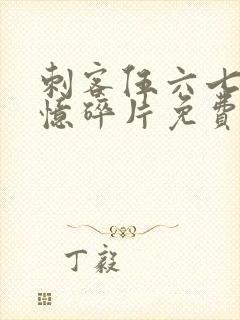 刺客伍六七
憶碎片免費
丁毅